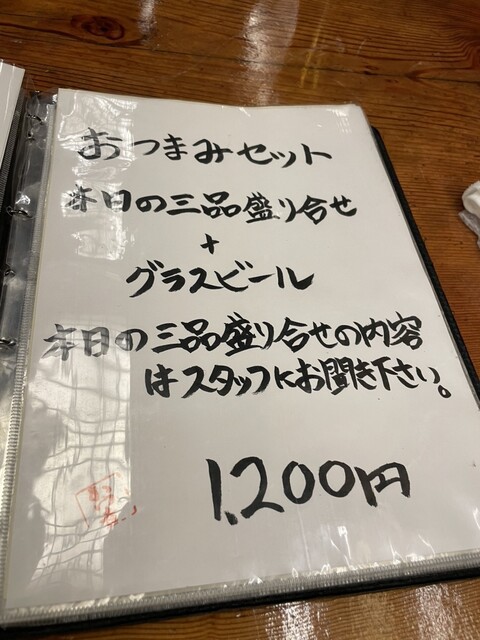 おつまみセット
本日の三品盛り合せ
+
グラスビール
本日の三品盛り合せの内容
はスタッフにお聞き下さい。
1,200円